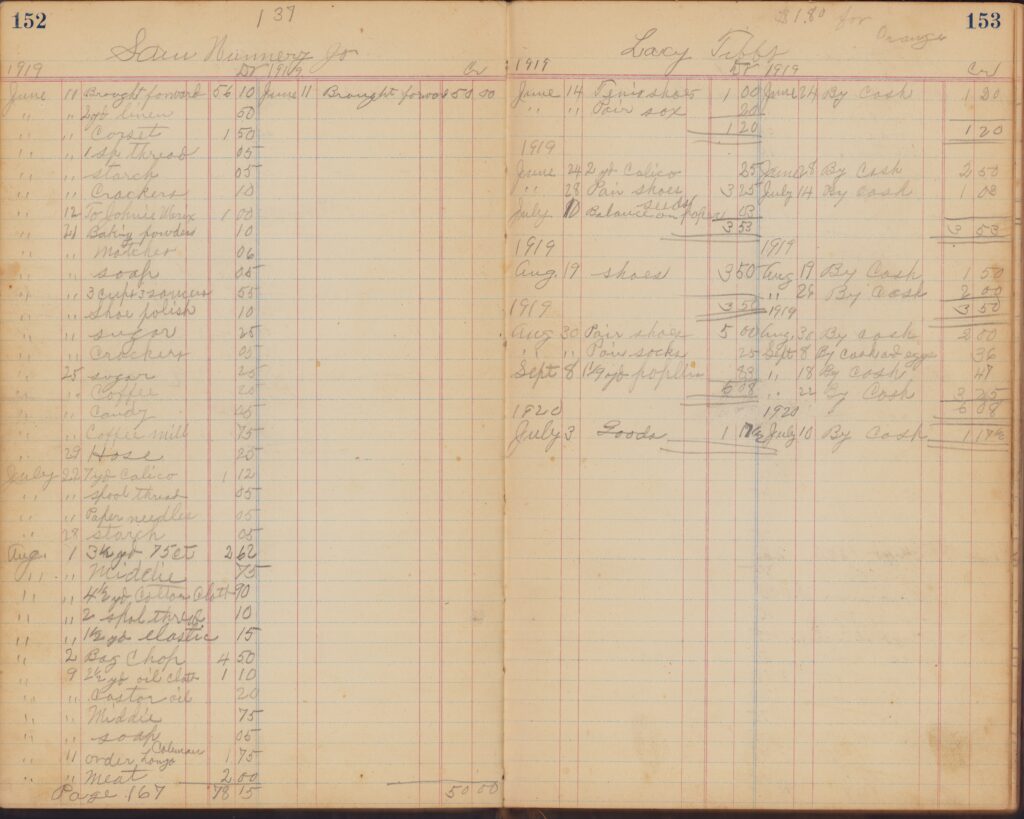 152
137
Sam Nunnery Jr
1919 Dr 1919 Cr
June 11 Brought forward 56 10 June 11 Brought forward 50 00
" " 2 yd linen 50
" " Corset 1 50
" " 1 sp thread 05
" " starch 05
" " Crackers 10
" 12 To Johnie 1 00
" 21 Baking powders 10
" " Matches 06
" " soap 05
" " 3 cups 3 saucers 55
" " Shoe polish 10
" " sugar 25
" " Crackers 05
" 25 sugar 25
" " Coffee 20
" " Candy 05
" " Coffee Mill 75
" 29 Hose 25
July 22 7 yd Calico 1 12
" " spool thread 05
" " Paper needles 05
" 28 starch 05
Aug. 1 3½ yd 75ct 2 62
" " Middie 75
" " 4½ yd Cotton Cloth 90
" " 2 spol thread 10
" " 1½ yd elastic 15
" 2 Bag Chop 4 50
" 9 2½ yd oil cloth 1 10
" " Castor oil 20
" " Middie 75
" " soap 05
" 11 order Coleman 1 75
" " Meat 2 00
Page 167 78 15 50 00
153
$1.80 for
Oranges
Lacy Tibbs
1919 Dr 1919 Cr
June 14 Tenis shoes 1 00 June 24 By Cash 1 20
" " Pair sox 20
1 20 1 20
1919
June 24 2 yd Calico 25 June 28 By Cash 2 50
" 28 Pair shoes 3 25 July 14 By Cash 1 03
July 10 Balance on seeds 03
3 53 3 53
1919 1919
Aug. 19 shoes 3 50 Aug 19 By Cash 1 50
" 26 By Cash 2 00
3 50 3 50
1919 1919
Aug 30 Pair shoes 5 00 Aug. 30 By cash 2 00
" " Pair socks 25 Sept 8 By Cash and eggs 36
Sept 8 yd poplin 83 " 18 By Cash 47
6 08 " 22 By Cash 3 25
6 08
1920 1920
July 3 Goods 1 17½ July 10 By Cash 1 17½